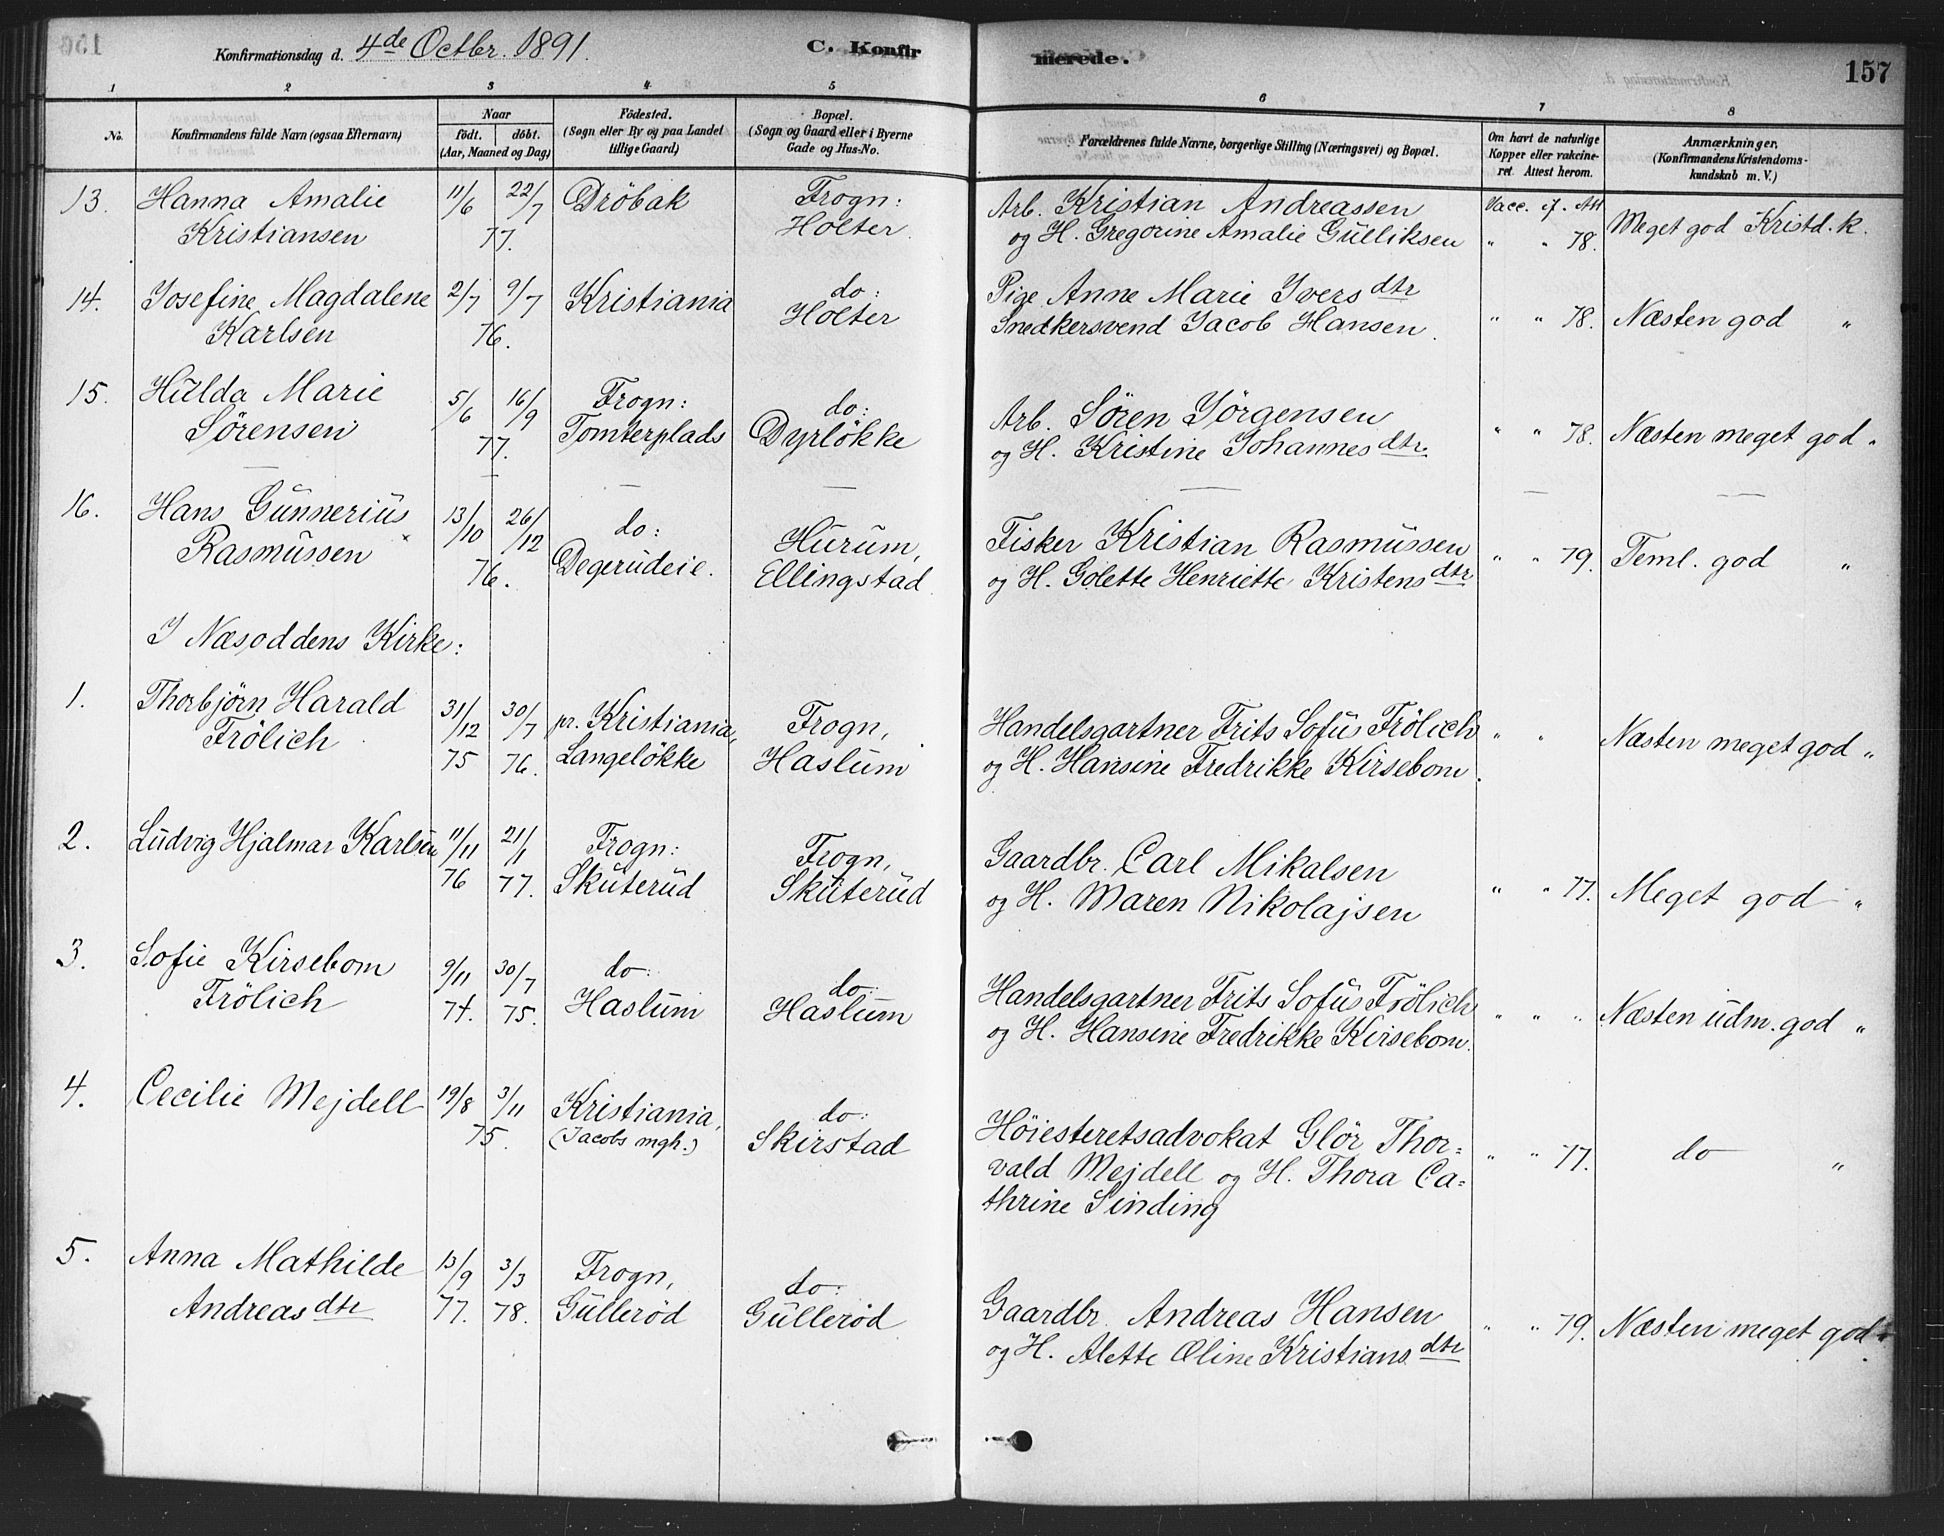 Konfirmationsdag d. 4de Octbr. 1891.
C. Konfirmerede.
157
1 2 3 4 5 6 7 8
No.
Konfirmandens fulde Navn (ogsaa Efternavn)
Naar
födt. döbt.
(Aar, Maaned og Dag)
Födested.
(Sogn eller By og paa Landet
tillige Gaard)
Bopæl.
(Sogn og Gaard eller i Byerne
Gade og Hus-No.
Forældrenes fulde Navne, borgerlige Stilling (Næringsvei) og Bopæl.
Om havt de naturlige
Kopper eller vakcine-
ret. Attest herom.
Anmærkninger.
(Konfirmandens Kristendoms-
kundskab m. V.)
13. Hanna Amalie 11/6 22/7 Dröbak Frogn: Arb. Kristian Andreassen Vacc. if. Att
Kristiansen 77. Holter. og H. Gregorine Amalie Gulliksen " " 78. Meget god Kristd. k.
14. Josefine Magdalene 2/7 9/7 Kristiania do: Pige Anne Marie Iversdtr
Karlsen 76. Holter Snedkersvend Jacob Hansen. " " 78. Næsten god "
15. Hulda Marie 5/6 16/9 Frogn: do: Arb. Sören Jörgensen
Sörensen 77. Tomterplads Dyrlökke og H. Kristine Johannesdtr. " " 78. Næsten meget god "
16. Hans Gunnerius 13/10 26/12 do: Hurum, Fisker Kristian Rasmussen
Rasmussen 76. Degerudeie. Ellingstad og H. Golette Henriette Kristensdtr " " 79. Teml. god "
I Næsoddens Kirke:
1. Thorbjörn Harald 31/12 30/7 pr. Kristiania, Frogn, Handelsgartner Frits Sofus Frölich " "
Frölich 75 76. Langelökke Haslum og H. Hansine Fredrikke Kirsebom. Næsten meget god "
2. Ludvig Hjalmar Karlsen 11/11 21/1 Frogn: Frogn, Gaardbr. Carl Mikalsen
76 77. Skuterud Skuterud og H. Maren Nikolajsen " " 77. Meget god "
3. Sofie Kirsebom 9/11 30/7 do: do: Handelsgartner Frits Sofus Frölich
Frölich 74. 75. Haslum Haslum og H. Hansine Fredrikke Kirsebom. " " " Næsten udm. god "
4. Cecilie Mejdell 19/8 3/11 Kristiania, do: Höiesteretsadvokat Glör Thor-
75. (Jacobs mgh.) Skirstad vald Mejdell og H. Thora Ca- " " 77. do "
thrine Sinding
5. Anna Mathilde 13/9 3/3 Frogn, do: Gaardbr. Andreas Hansen
Andreasdtr 77. 78. Gulleröd Gulleröd og H. Alette Oline Kristiansdtr " " 79. Næsten meget god "